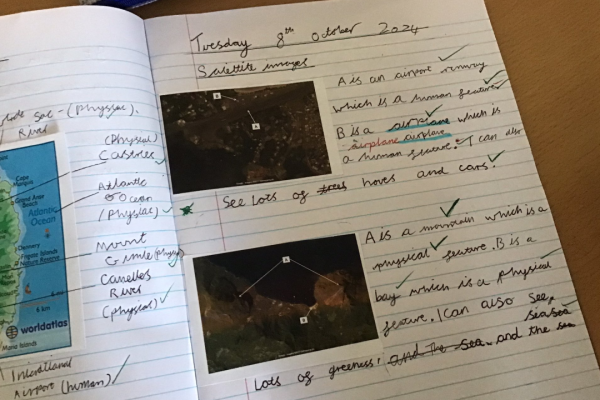 River
(Physical)
Atlantic
Ocean
Cape
Marquis
Grand Anse
Beach
Atlantic
Ocean
Dennery
Fregate Islands
Nature Reserve
4 mi
4 km
worldatlas
Maria Islands
(Physical)
Mount
Canelles
River
(physical)
Airport (human)
Tuesday 8th October 2024
Satellite images
B
A
A is an airport runway
which is a human feature
B is a airplane which is
airplane airplane
a human feature. I can also
See Lots of trees hoves and cars.
A
B
A is a mountain which is a
physical feature. B is a
bay which is a physical
feature. I can also see,
sea sea
Lots of greeness, and the sea. and the sea